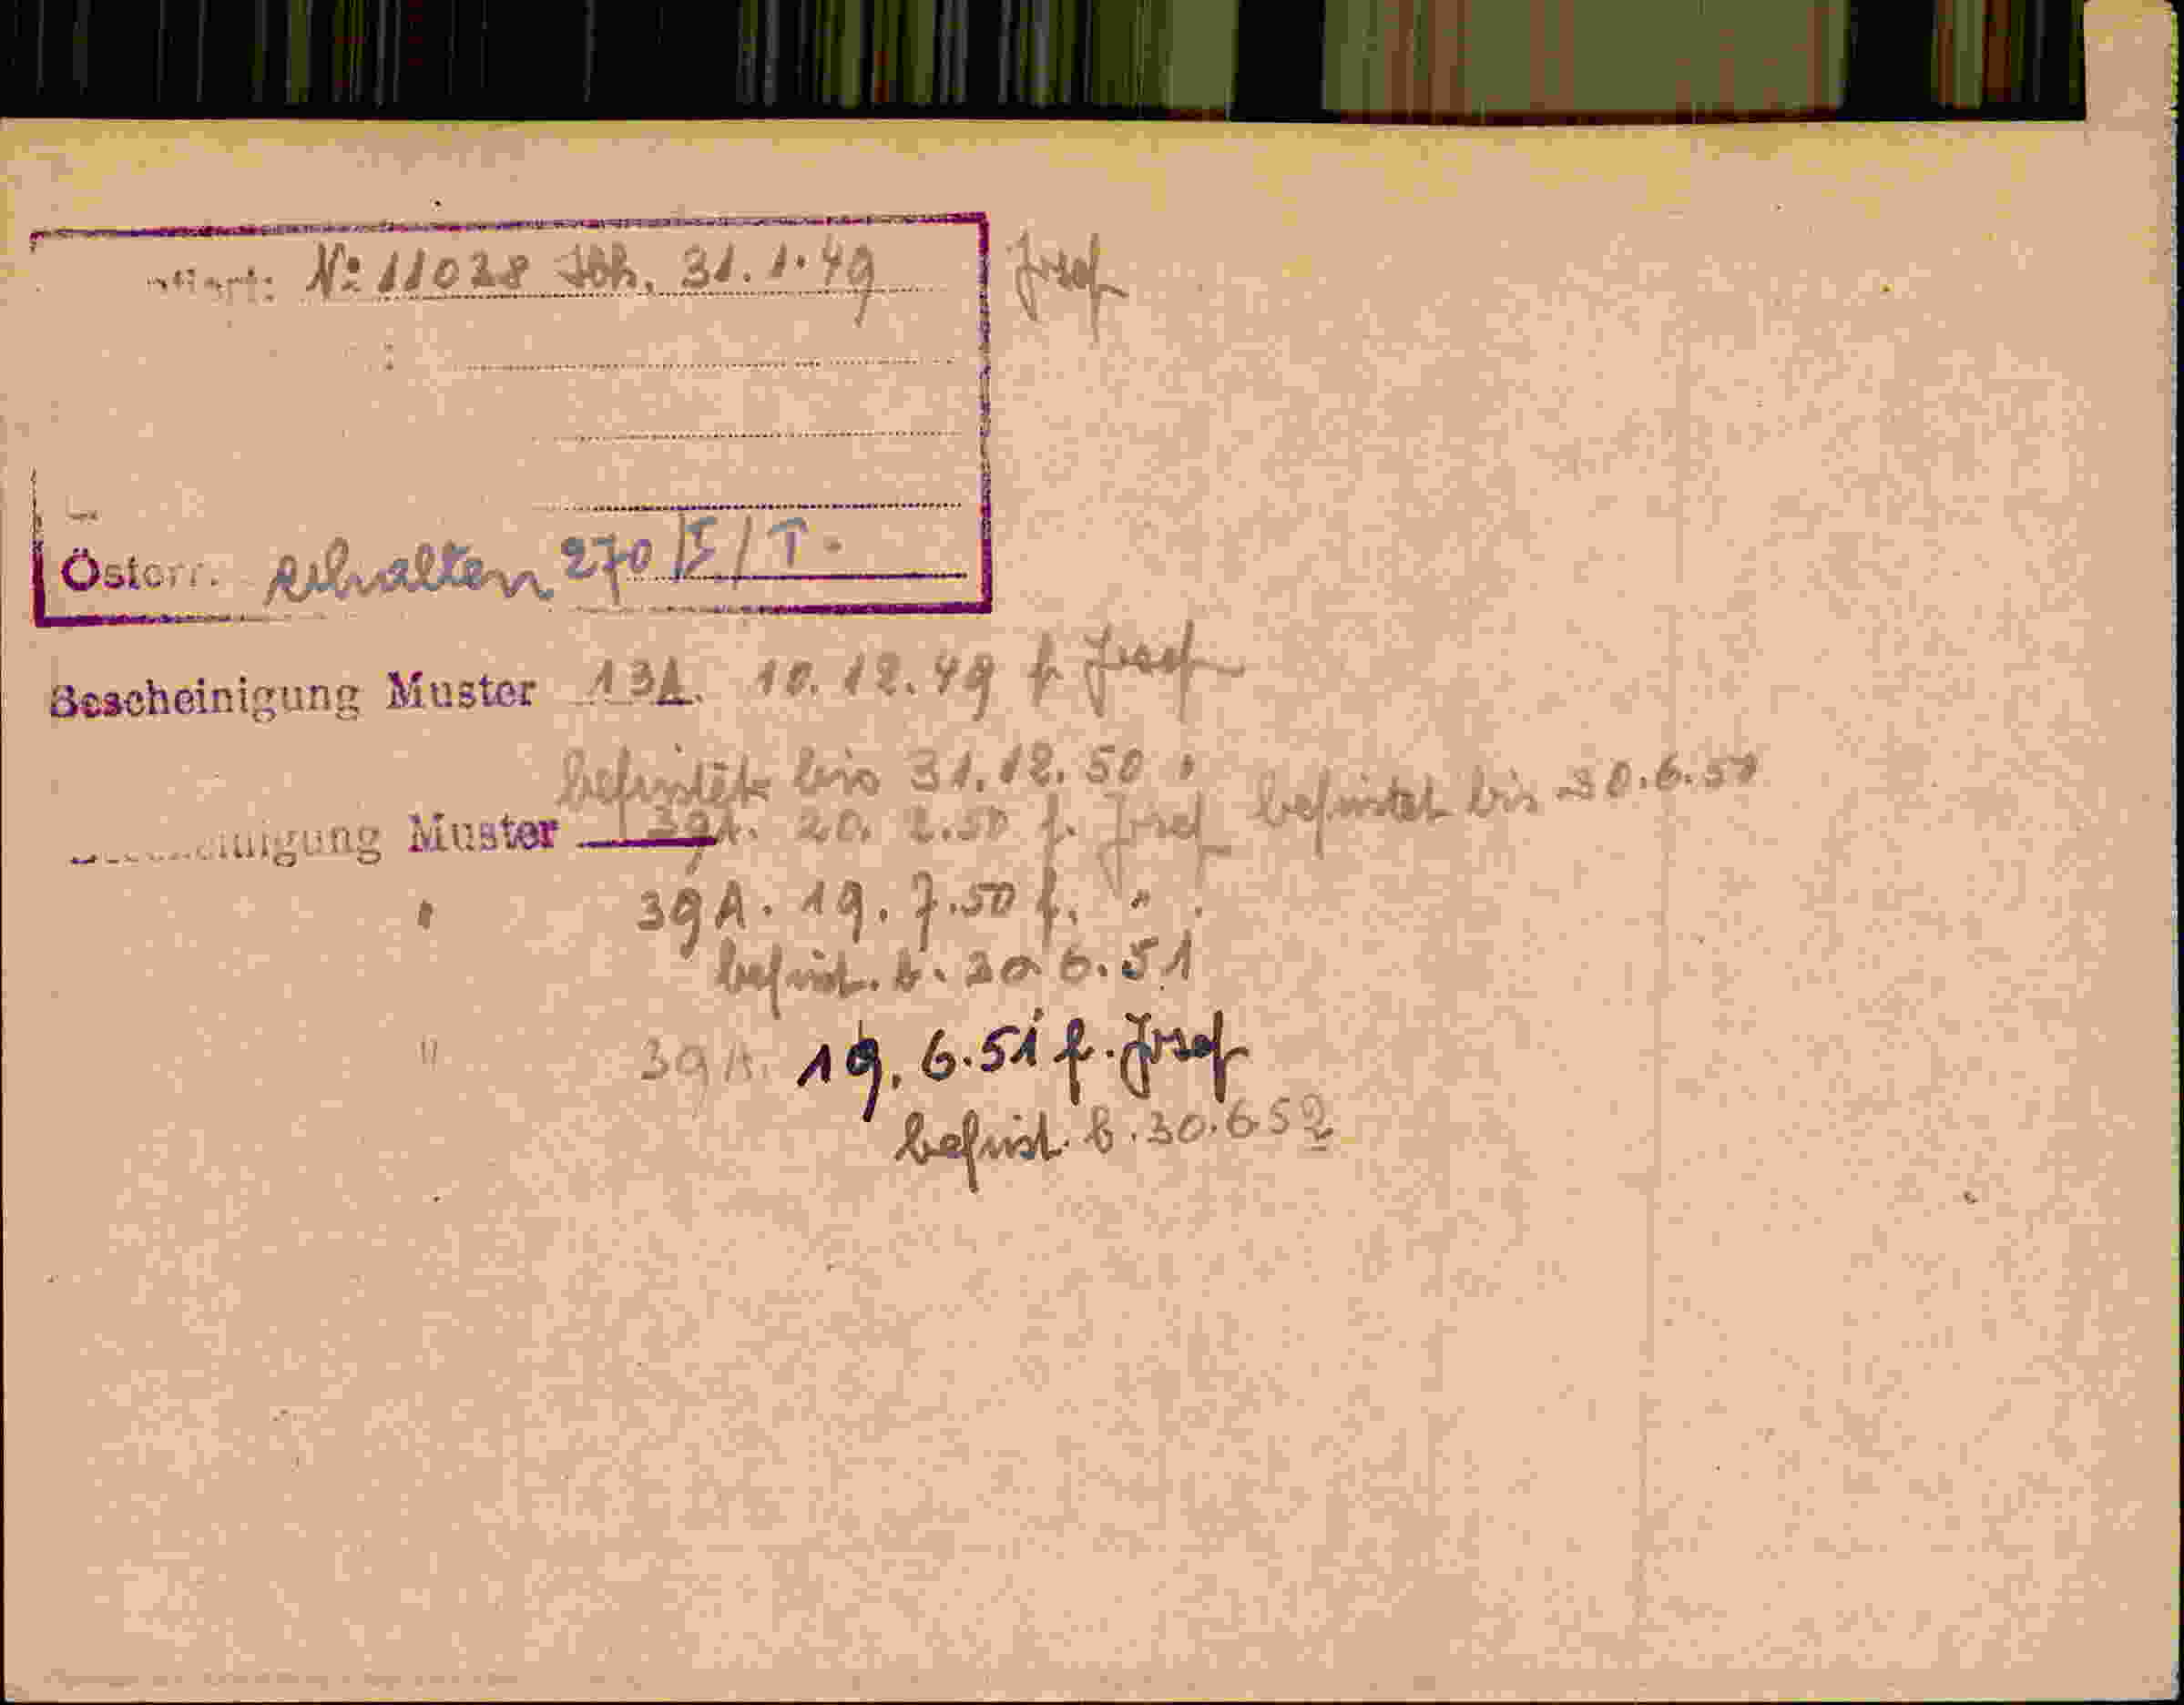 № 11028 31.1.49 Josef
Österr. erhalten 270/I/T.
Bescheinigung Muster 13A. 10.12.49 f. Josef
befristet bis 31.12.50
Muster 39A. 20. 2.50 f. Josef befristet bis 30.6.50
" 39A. 19. 7.50 f. "
befrist. b. 30 6.51
" 39A. 19. 6.51 f. Josef
befrist. b. 30.6 52